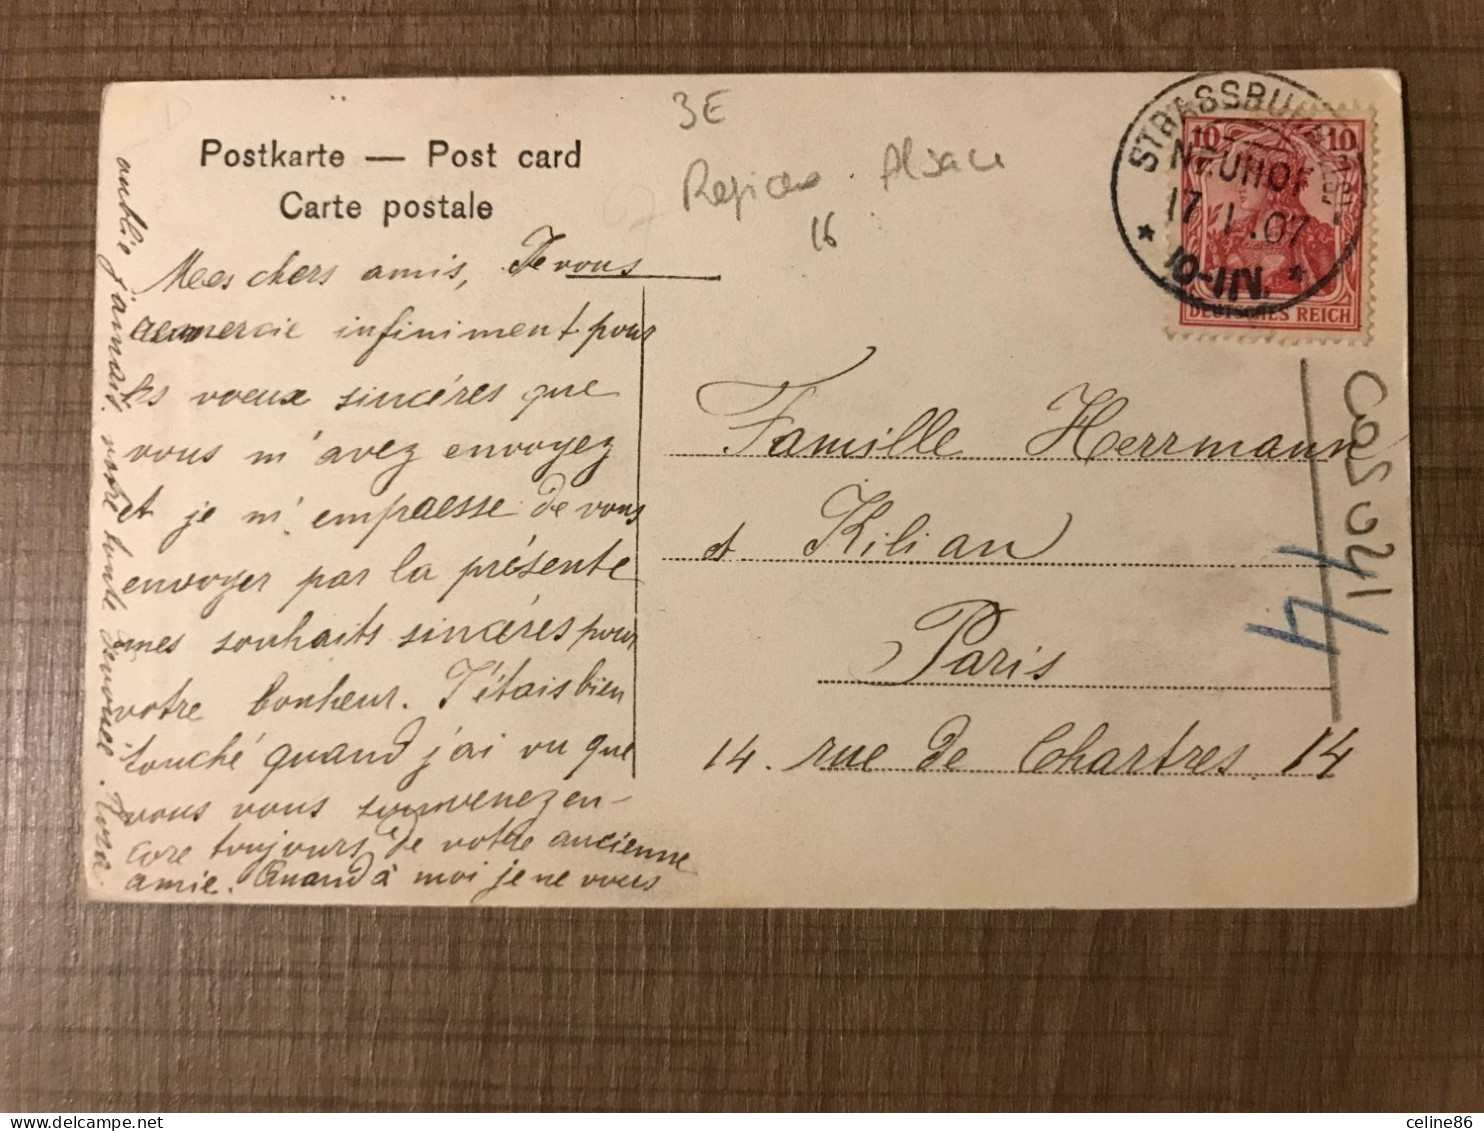 Postkarte — Post card
Carte postale
3E
Alsace
16
STRASSBURG
NEUHOF
17.1.07
10-11N.
10 10
DEUTSCHES REICH
Mes chers amis, Je vous
remercie infiniment pour
les voeux sincéres que
vous m'avez envoyez
et je m'empresse de vous
envoyer par la présente
mes souhaits sincéres pour
votre bonheur. J'étais bien
touché quand j'ai vu que
vous vous souvenez en-
core toujours de votre ancienne
amie. Quand à moi je ne vous
oublie jamais. votre toute devouée Rosa.
Famille Herrmann
et Kilian
Paris
14. rue de Chartres. 14
44
delcampe.net
celine86